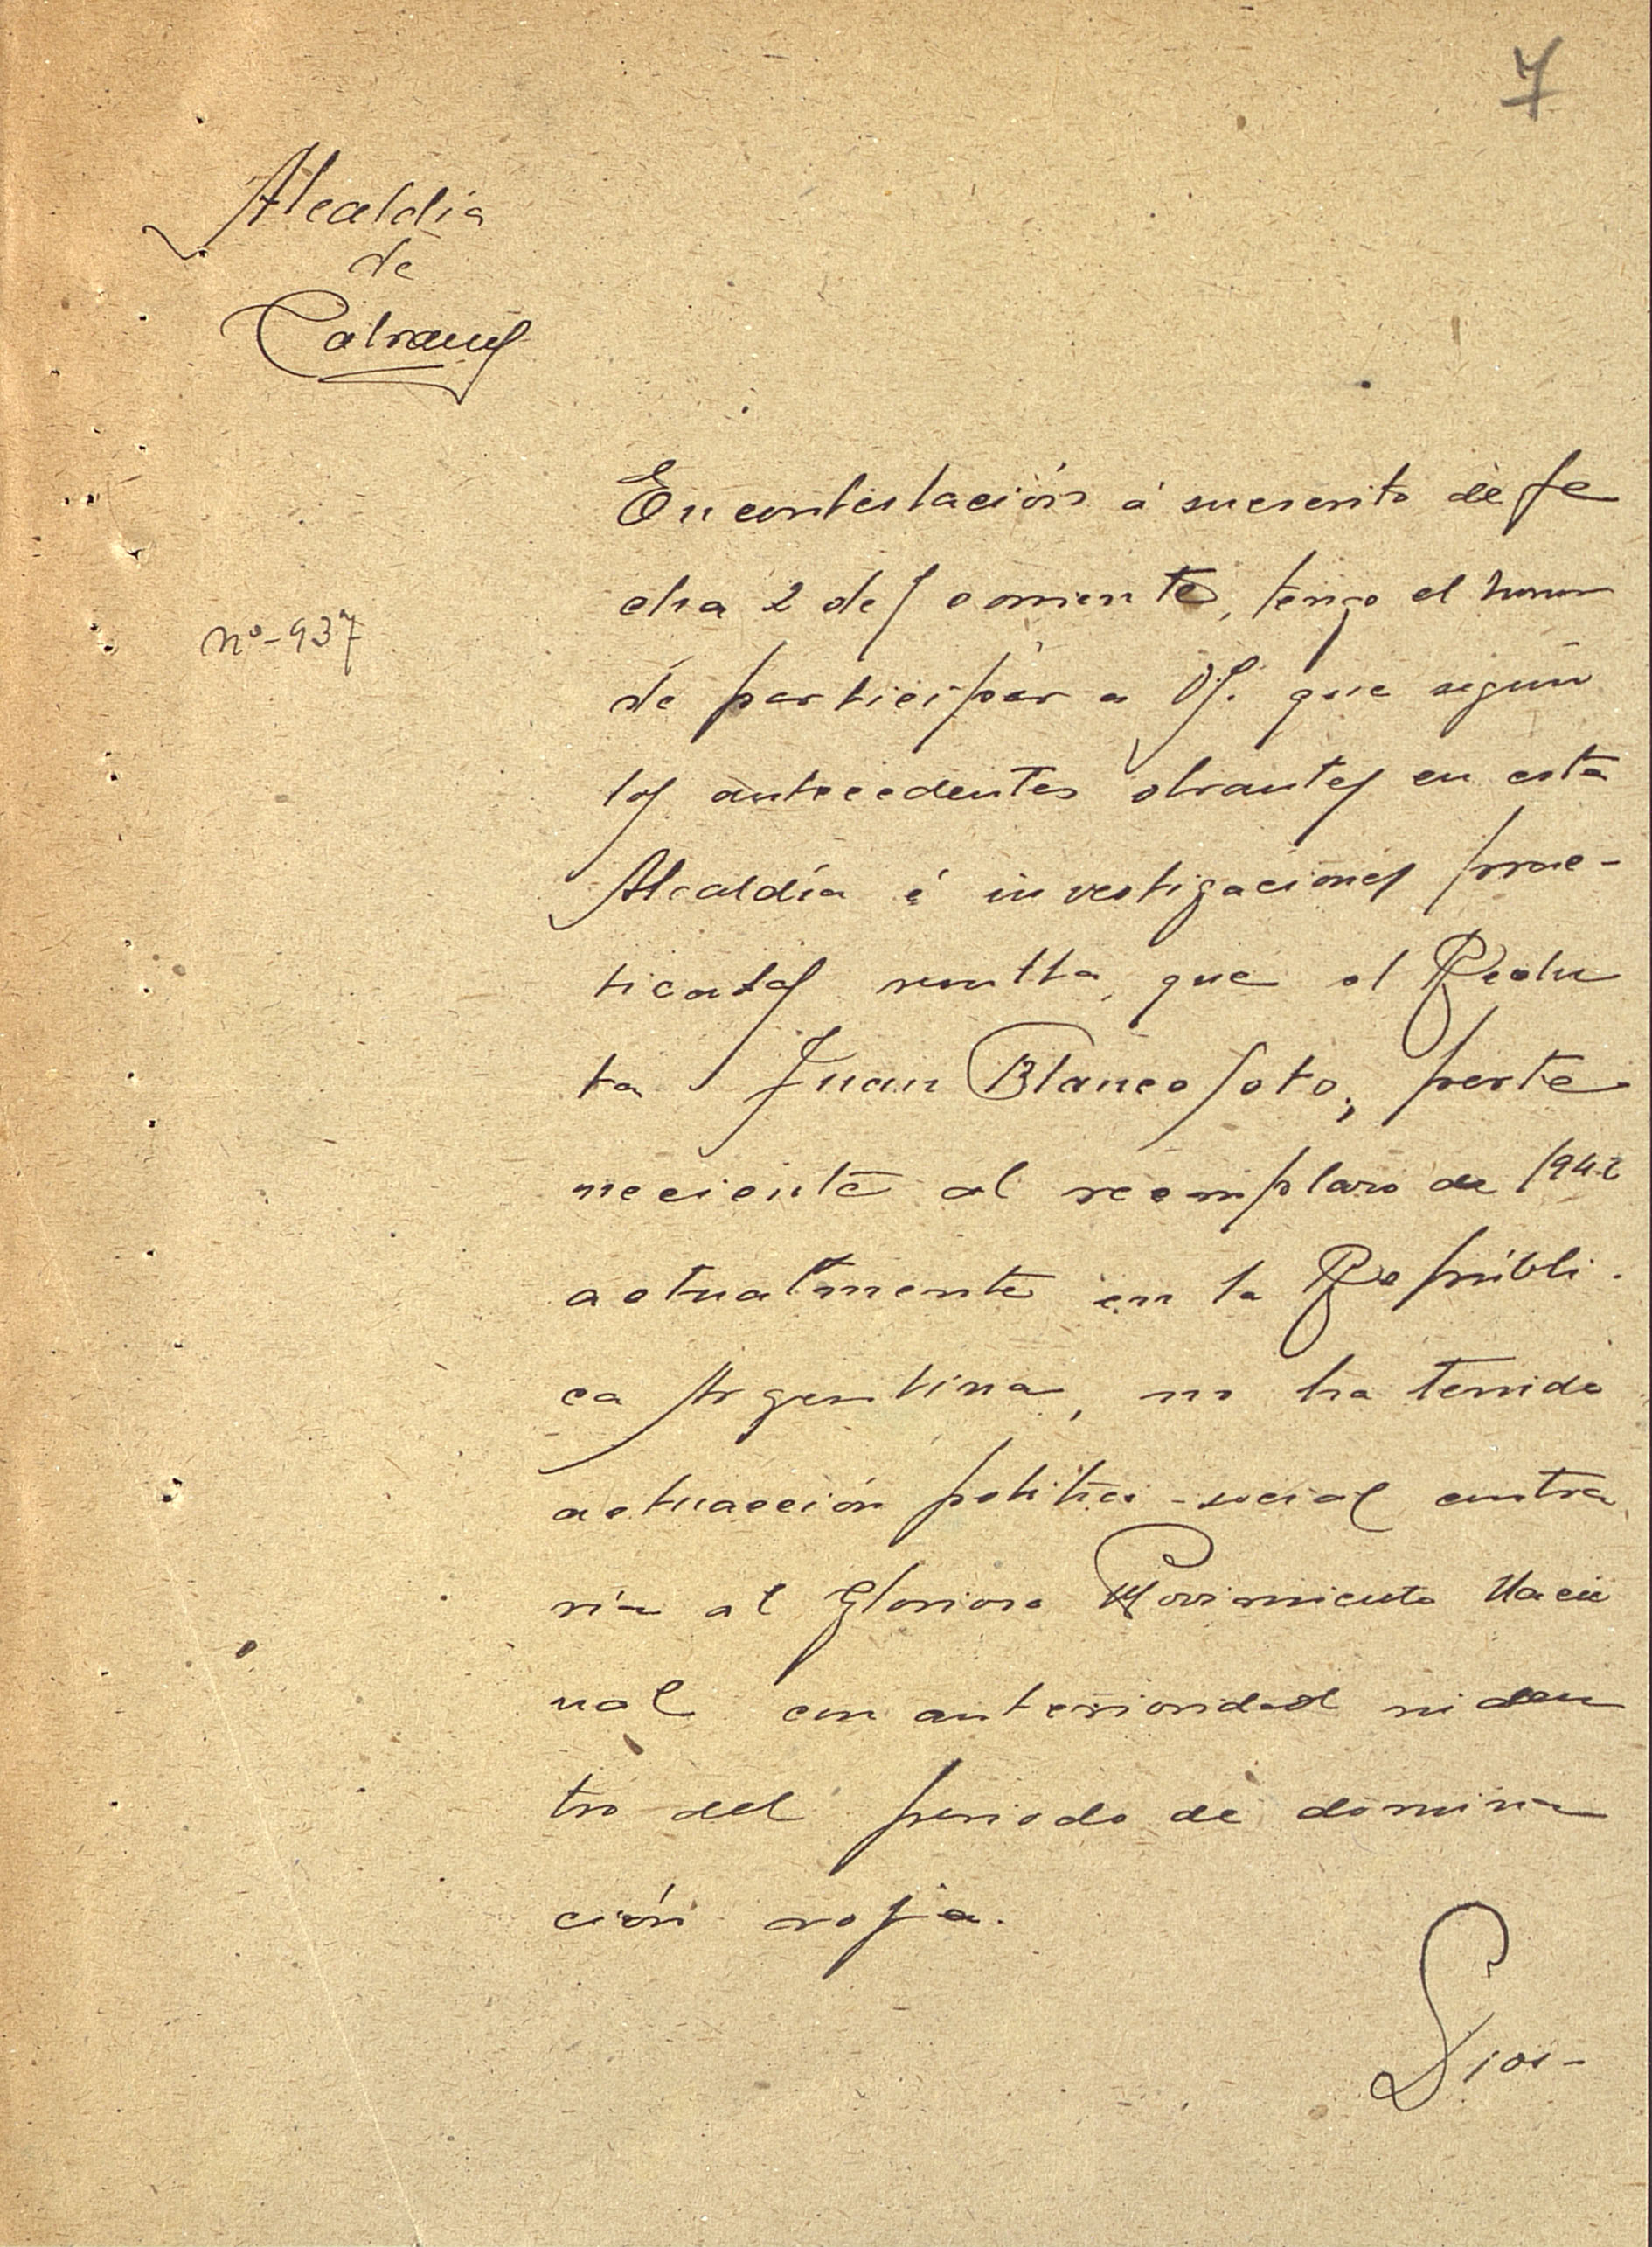 7
Alcaldía
de
Cabranes
nº-937
En contestación á su escrito de fe
cha 2 del corriente, tengo el honor
de participar a Vs. que según
los antecedentes obrantes en esta
Alcaldía é investigaciones prac-
ticadas resulta, que el Reclu
ta Juan Blanco Soto, perte
neciente al reemplazo de 1942
actualmente en la Repúbli-
ca Argentina, no ha tenido
actuacción politico-social contra
ria al Glorioso Movimiento Nacio
nal con anterioridad ni den
tro del periodo de domina
ción roja.
Dios-